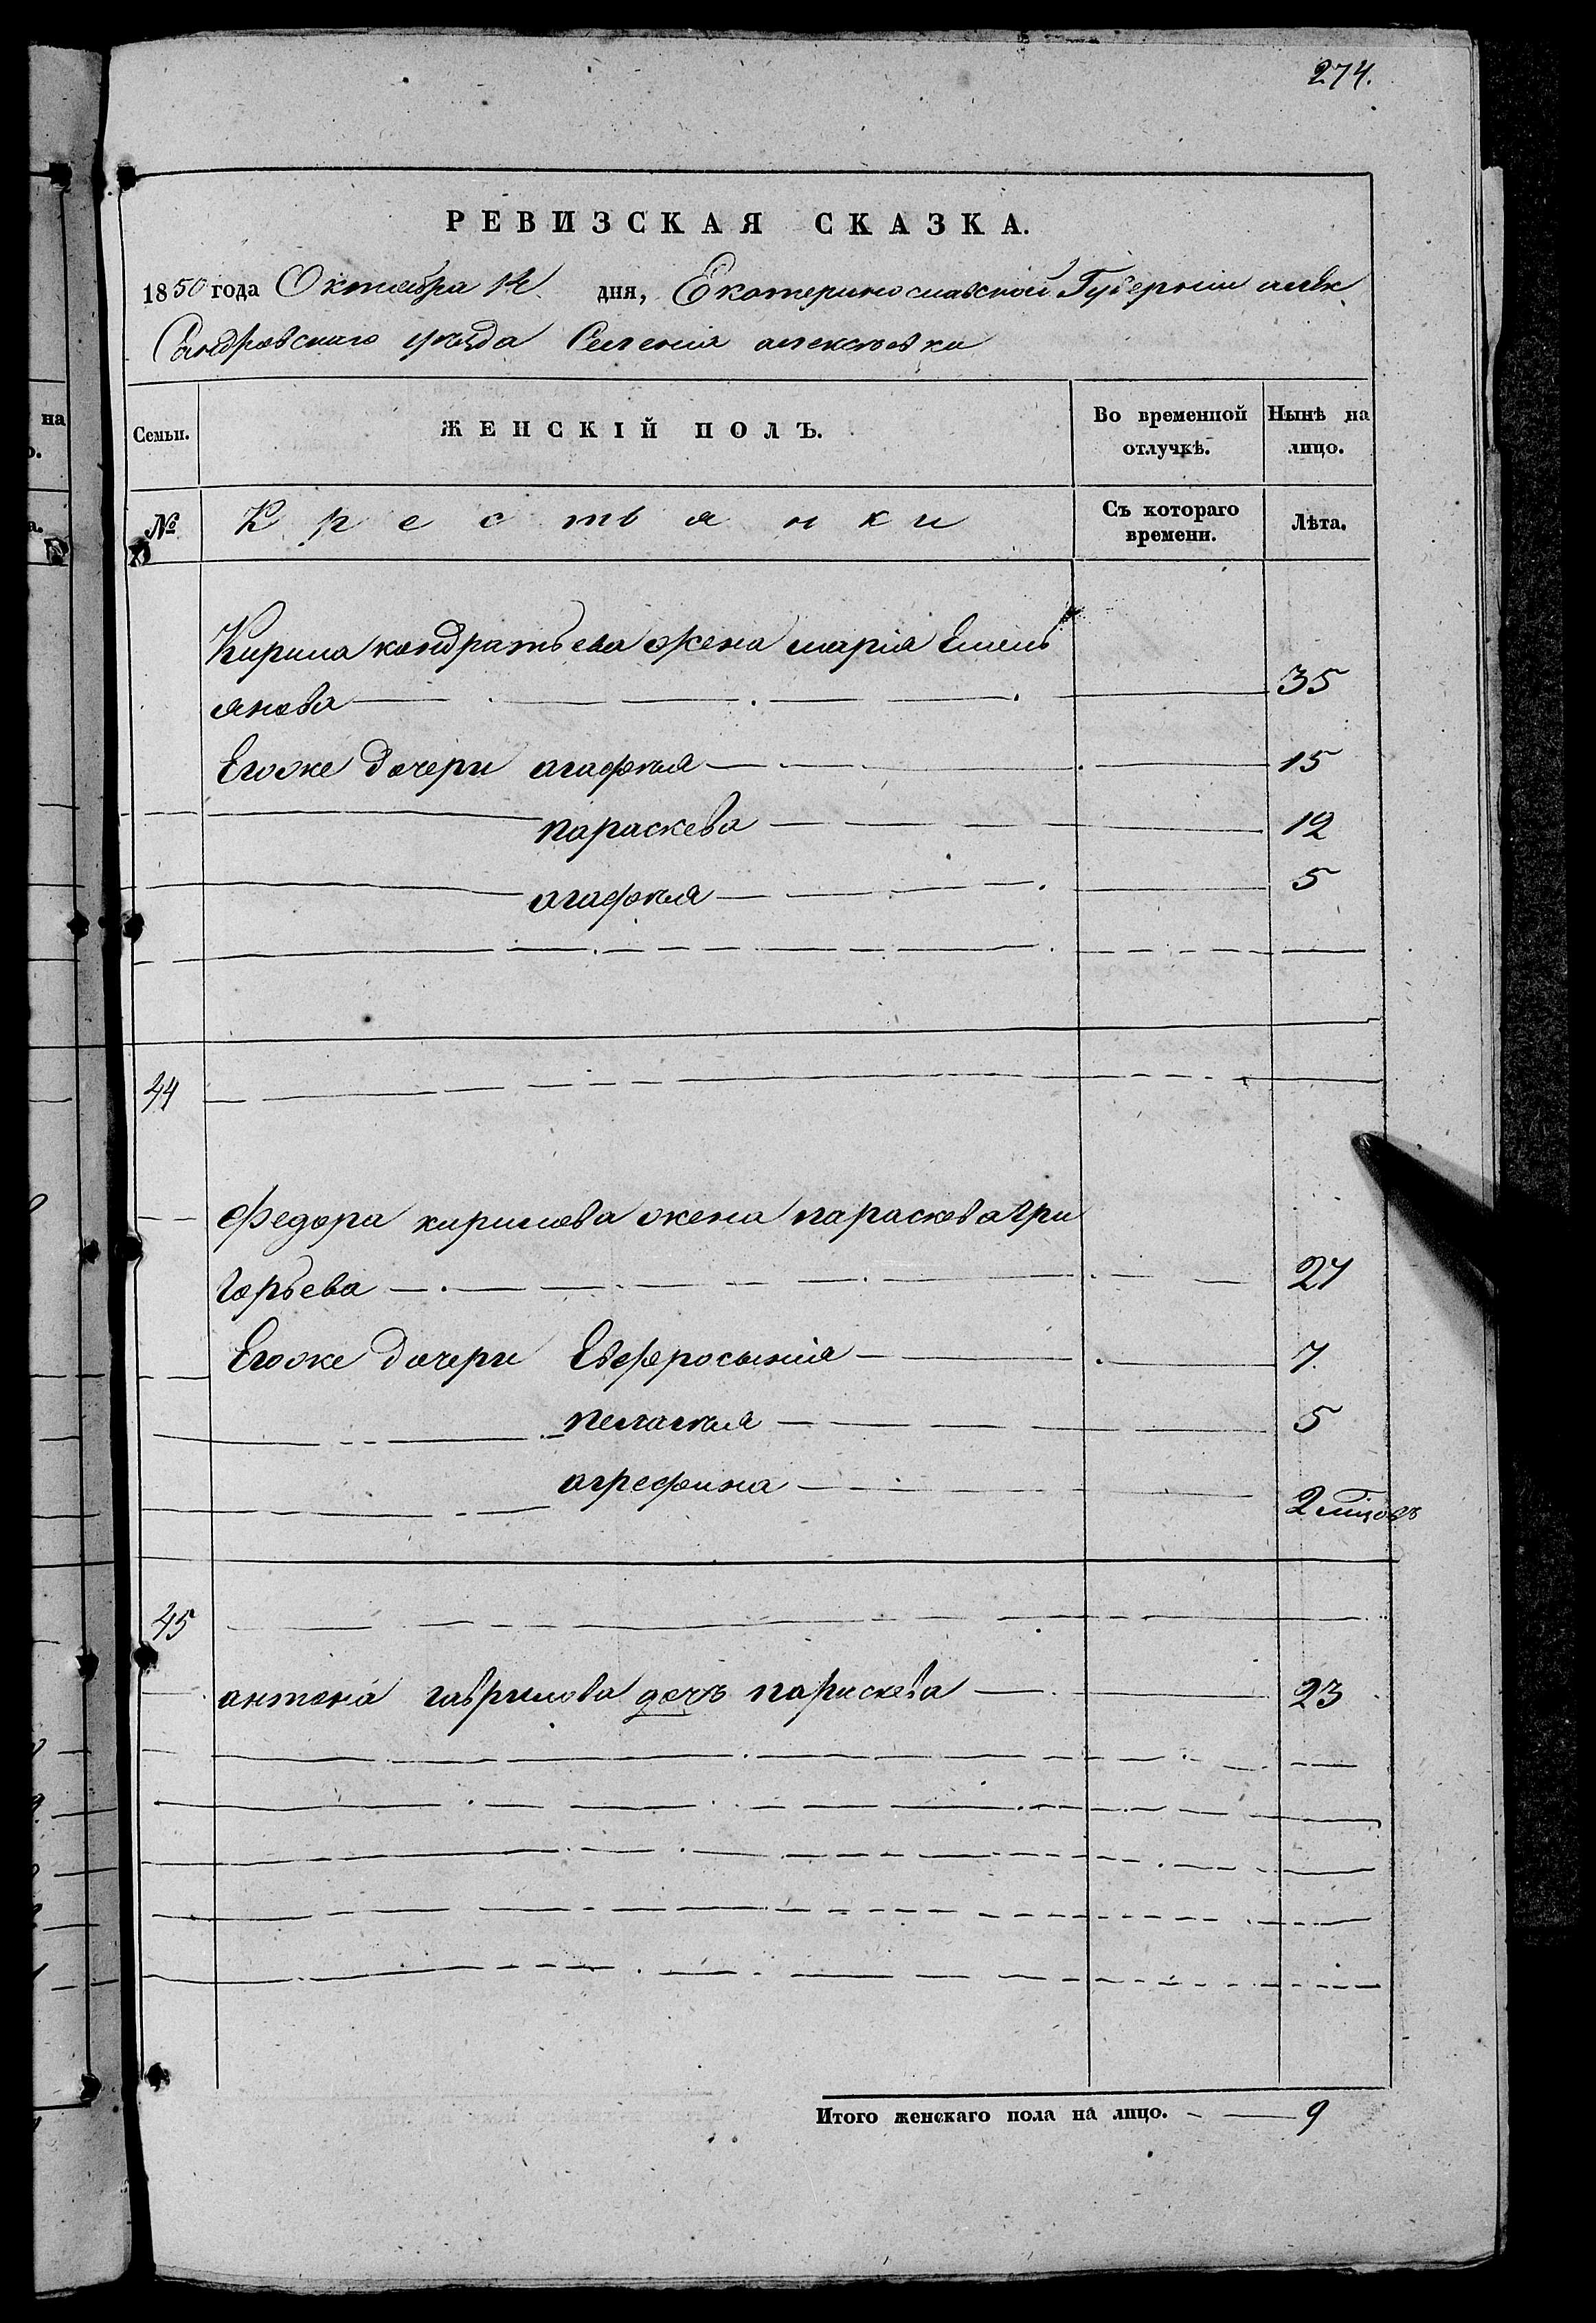 274.
РЕВИЗСКАЯ СКАЗКА.
1850 года Октября 12 дня, Екатеринославской Губерніи алек
Сандровскаго уѣзда Селенія алексѣевки
Семьи. ЖЕНСКІЙ ПОЛЪ. Во временной отлучкѣ. Нынѣ на лицо.
№ Крестьянки Съ котораго времени. Лѣта.
Кирила кондратьева жена марія Емель
янова 35
Егоже дочери агафия 15
параскева 12
агафия 5
44
федора кирилова жена параскева гри
горьева 27
Егоже дочери Евфросинія 7
пелагия 5
агрефина 2
45
антона гаврилова дочь параскева 23
Итого женскаго пола на лицо. 9
на